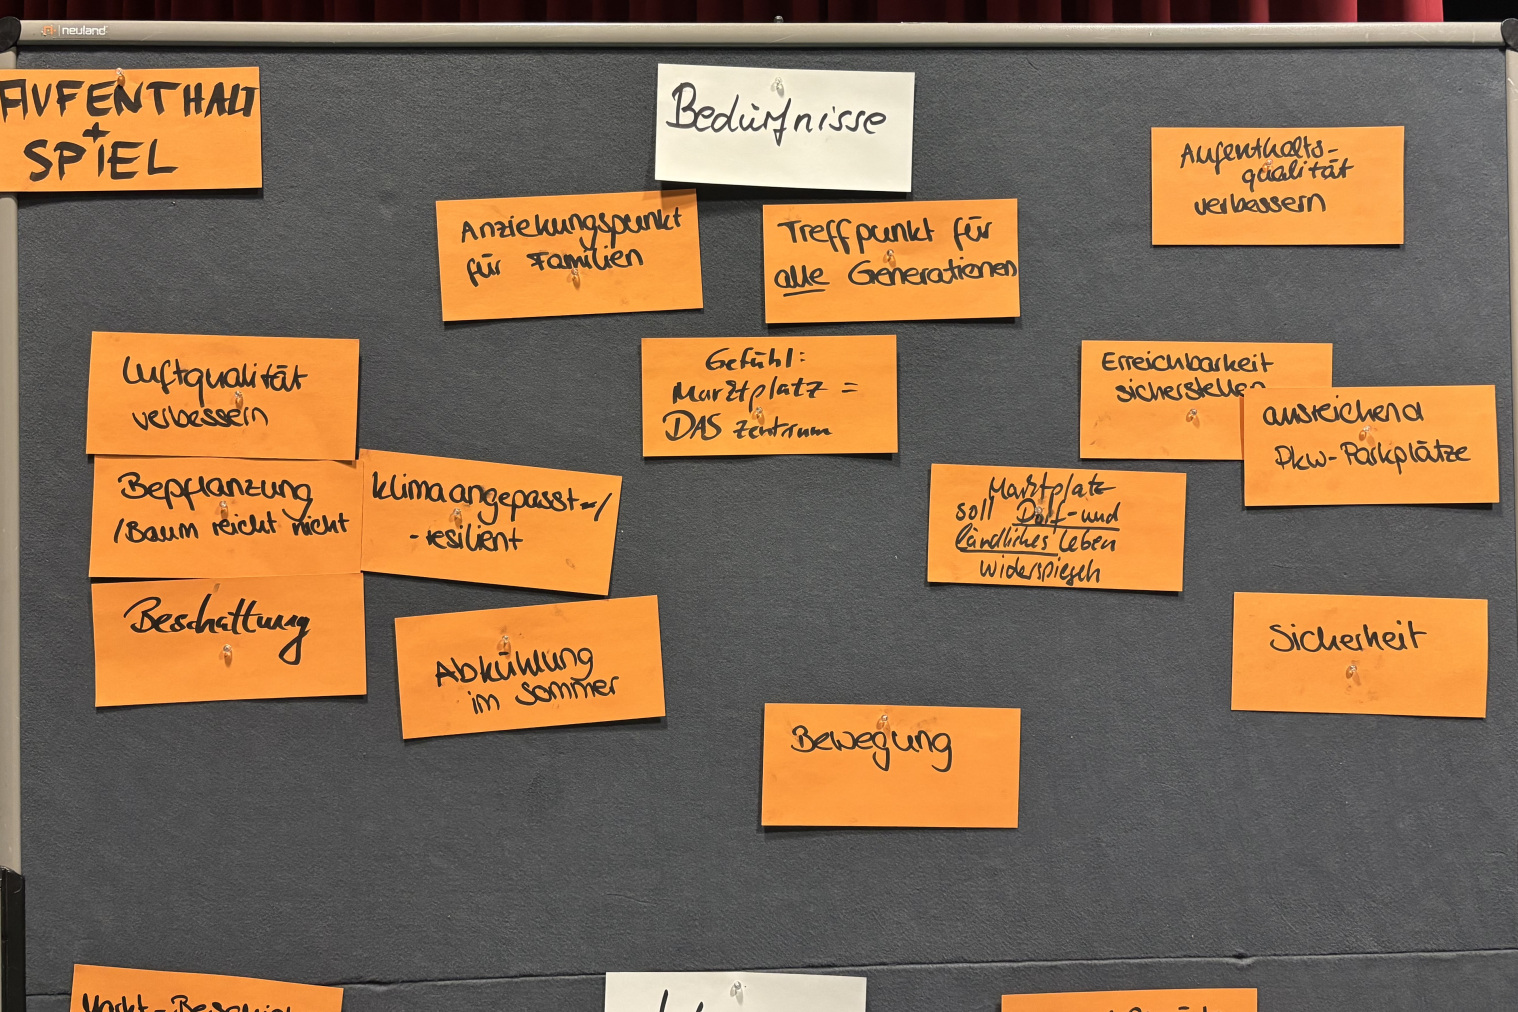 neuland
AUFENTHALT
+
SPIEL
Bedürfnisse
Aufenthalts-
qualität
verbessern
Anziehungspunkt
für Familien
Treffpunkt für
alle Generationen
Luftqualität
verbessern
Gefühl:
Marktplatz =
DAS Zentrum
Erreichbarkeit
sicherstellen
ausreichend
Pkw-Parkplätze
Bepflanzung
/Baum reicht nicht
klimaangepasst-/
-resilient
Marktplatz
soll Dorf- und
ländliches Leben
widerspiegeln
Beschattung
Abkühlung
im Sommer
Sicherheit
Bewegung